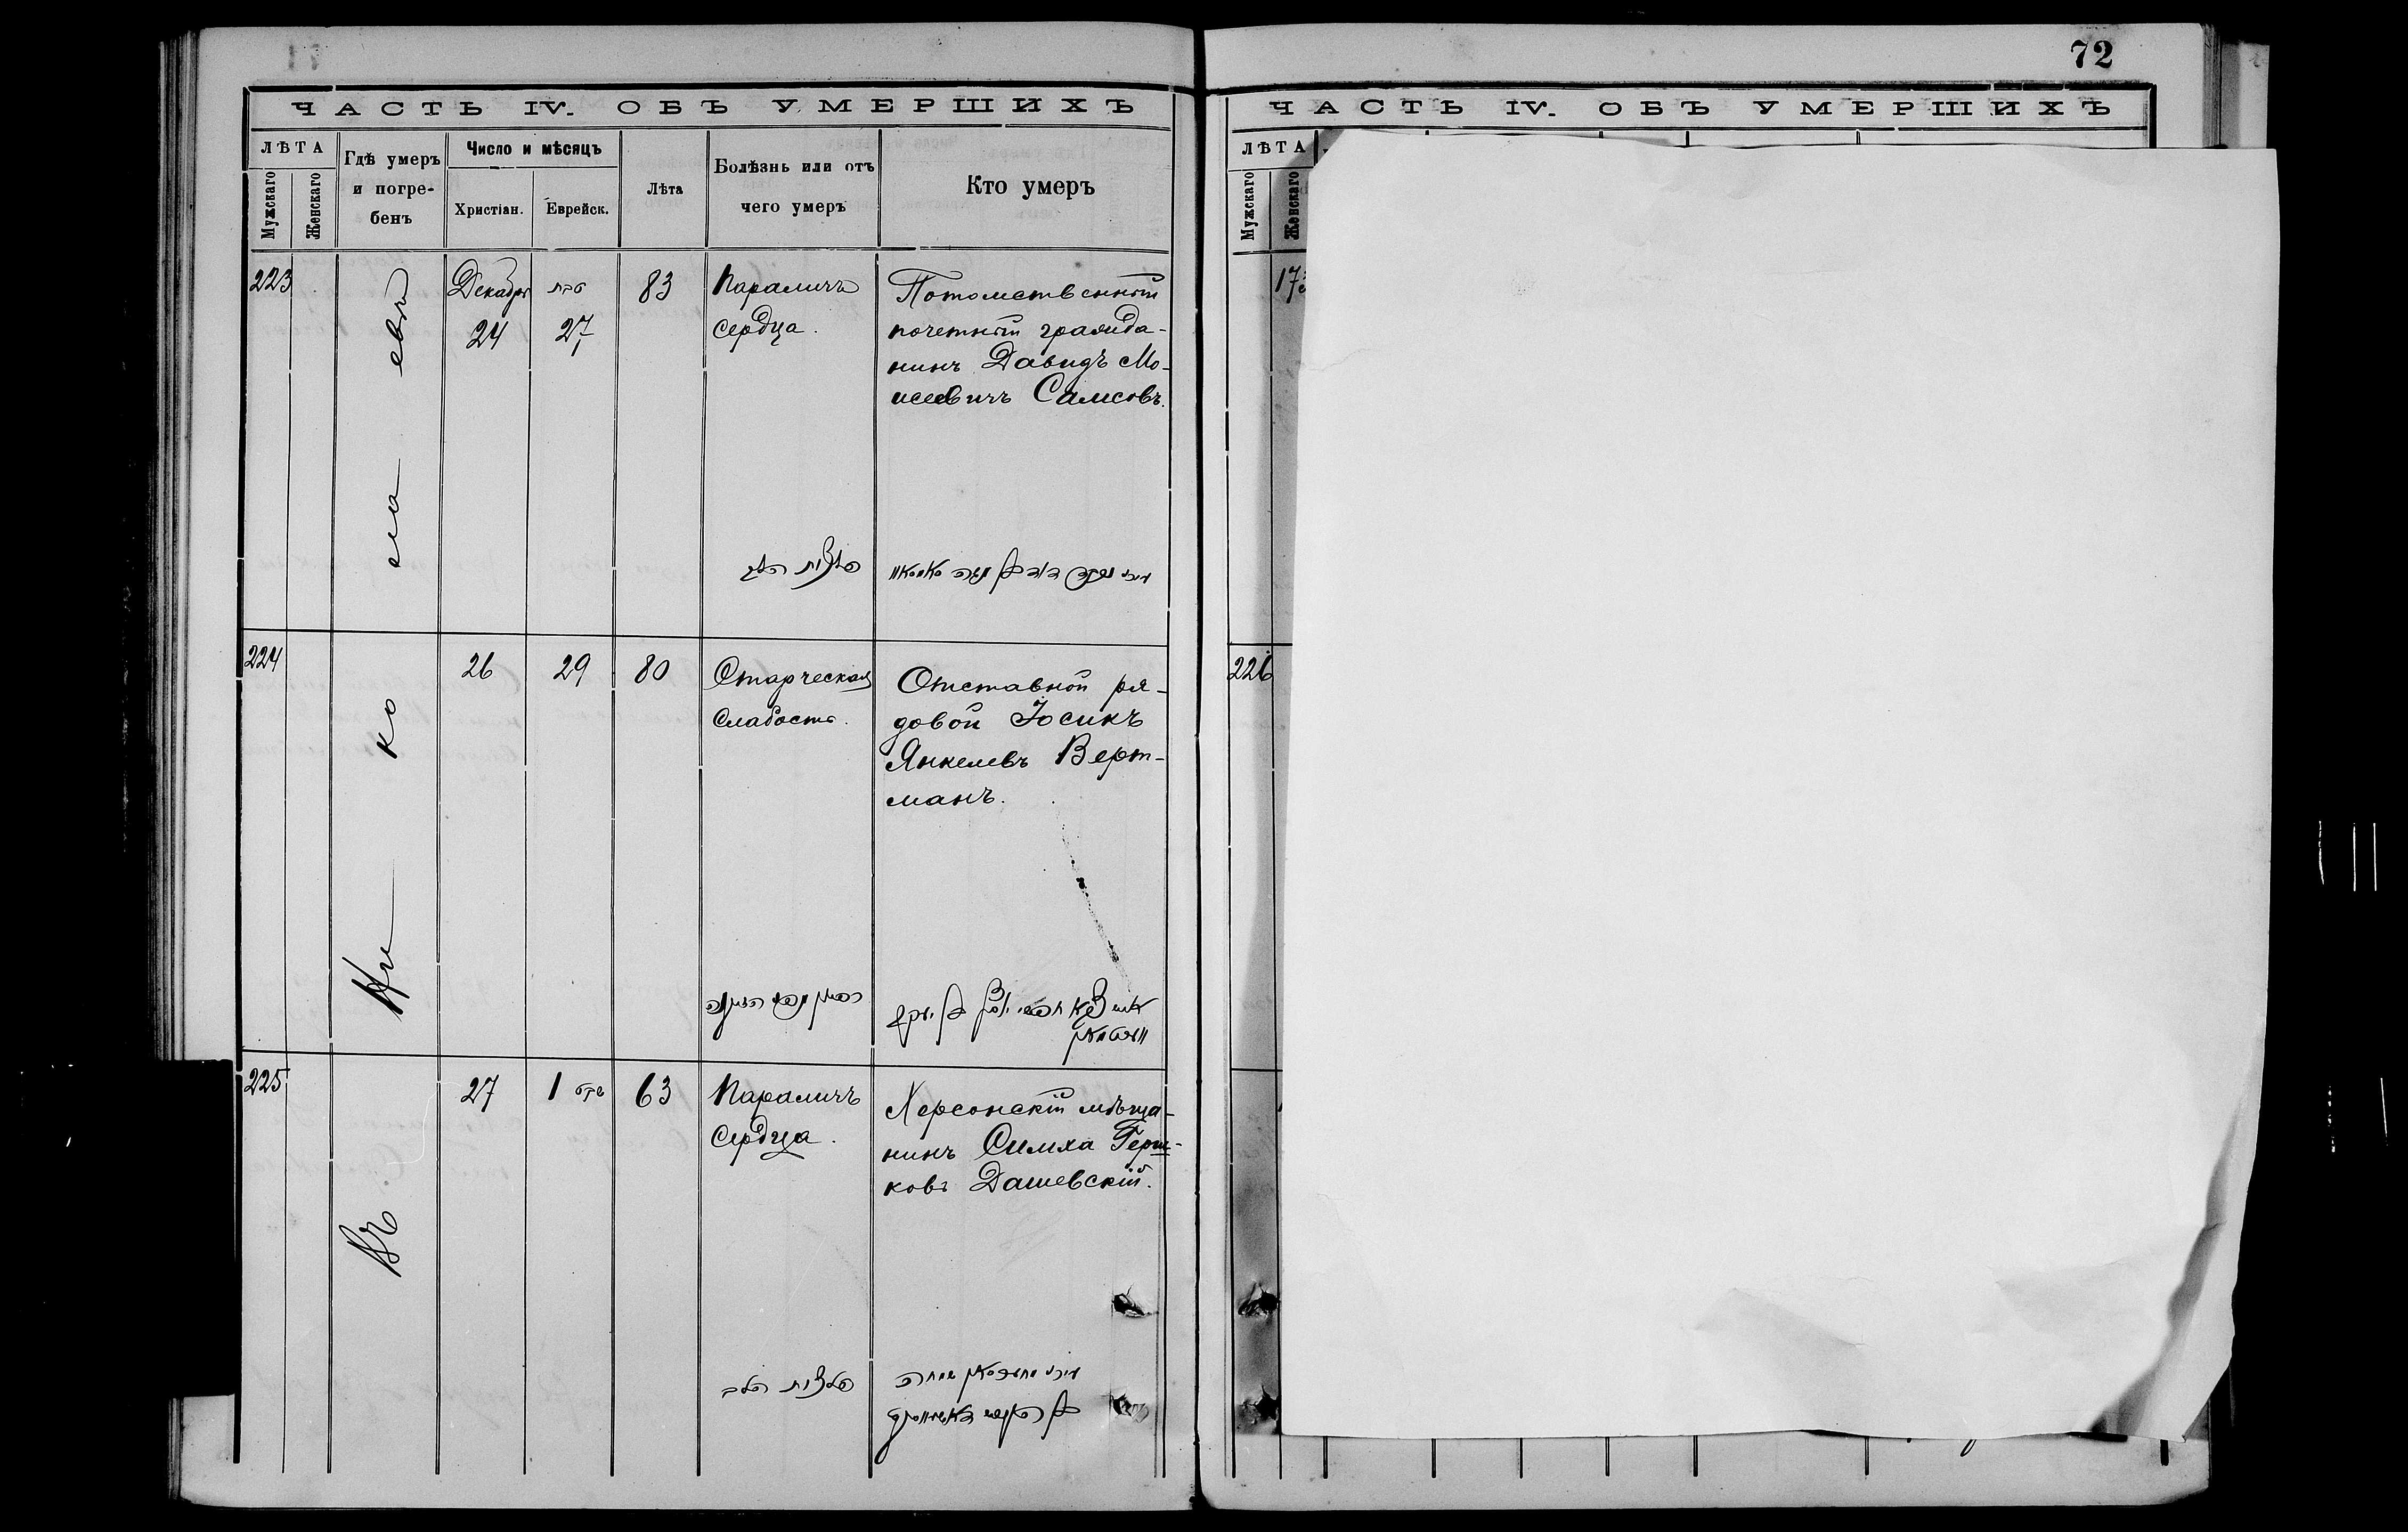 72
ЧАСТЬ IV. ОБЪ УМЕРШИХЪ
ЛѢТА
Мужскаго
Женскаго
Гдѣ умеръ
и погре-
бенъ
Число и мѣсяцъ
Христіан.
Еврейск.
Лѣта
Болѣзнь или отъ
чего умеръ
Кто умеръ
Въ Ни ко ла евѣ
223
Декабря
24
טבת
27
83
Параличъ
сердца.
Потомственный
почетный гражда-
нинъ Давидъ Мо-
исеевичъ Самсовъ.
שלצות הלב
224
26
29
80
Старческая
слабость.
Отставной ря-
довой Іосикъ
Янкелевъ Верт-
манъ.
225
27
1 שבט
63
Параличъ
сердца.
Херсонскій мѣща-
нинъ Симха Герш-
ковъ Дашевскій.
הלב
ЧАСТЬ IV. ОБЪ УМЕРШИХЪ
ЛѢТА
Мужскаго
Женскаго
226